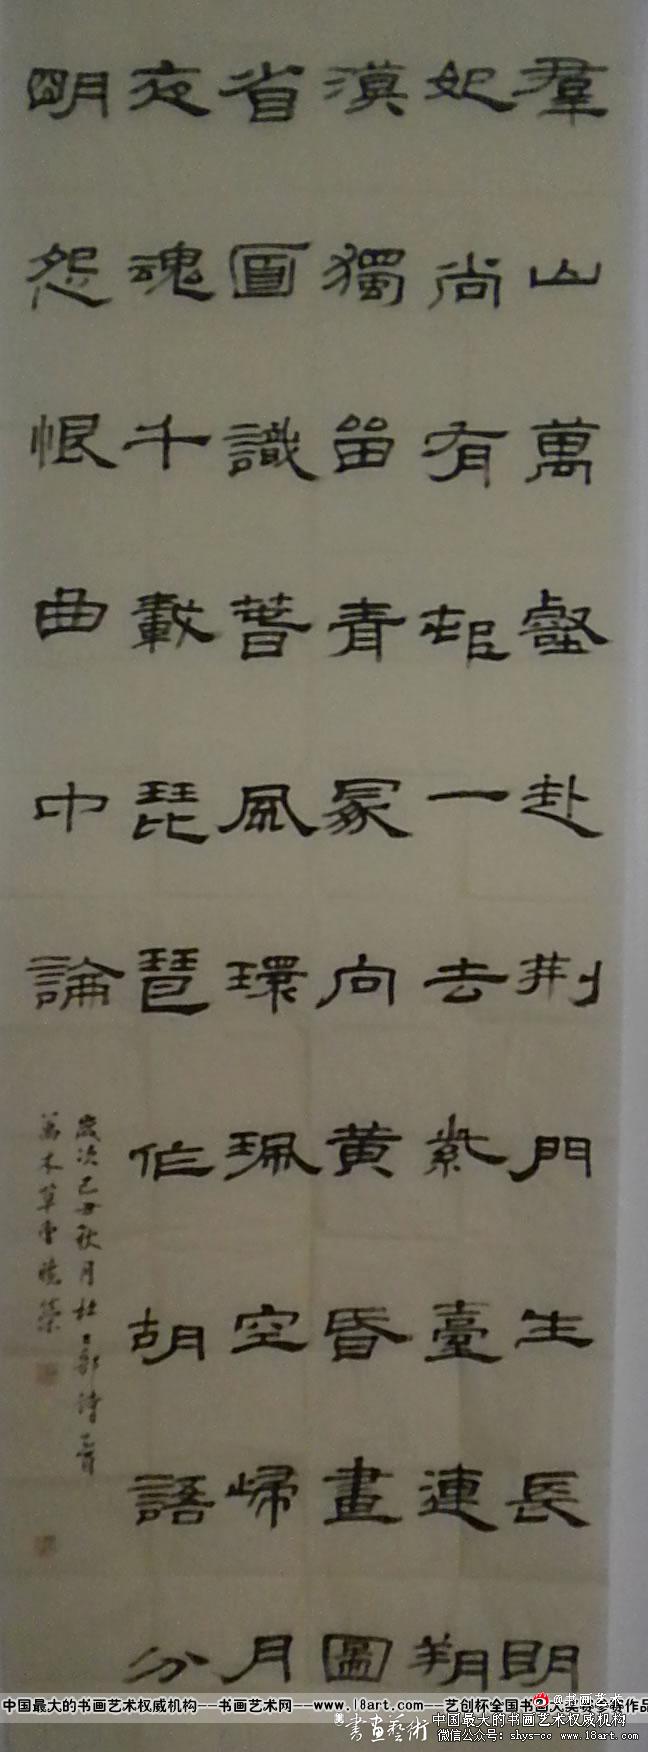 羣山萬壑赴荆門生長明
妃尚有邨一去紫臺連朔
漠獨留青冢向黄昏畫圖
省圖識春風環珮空歸月
夜魂千載琵琶作胡語分
明怨恨曲中論
歲次己丑秋月杜工部詩一首
萬木草堂
@书画艺术
中国最大的书画艺术权威机构---书画艺术网---www.18art.com---艺创杯全国书画大奖赛参赛作品
書画藝術
中国最大的书画艺术权威机构
微信公众号：shys-cc www.18art.com